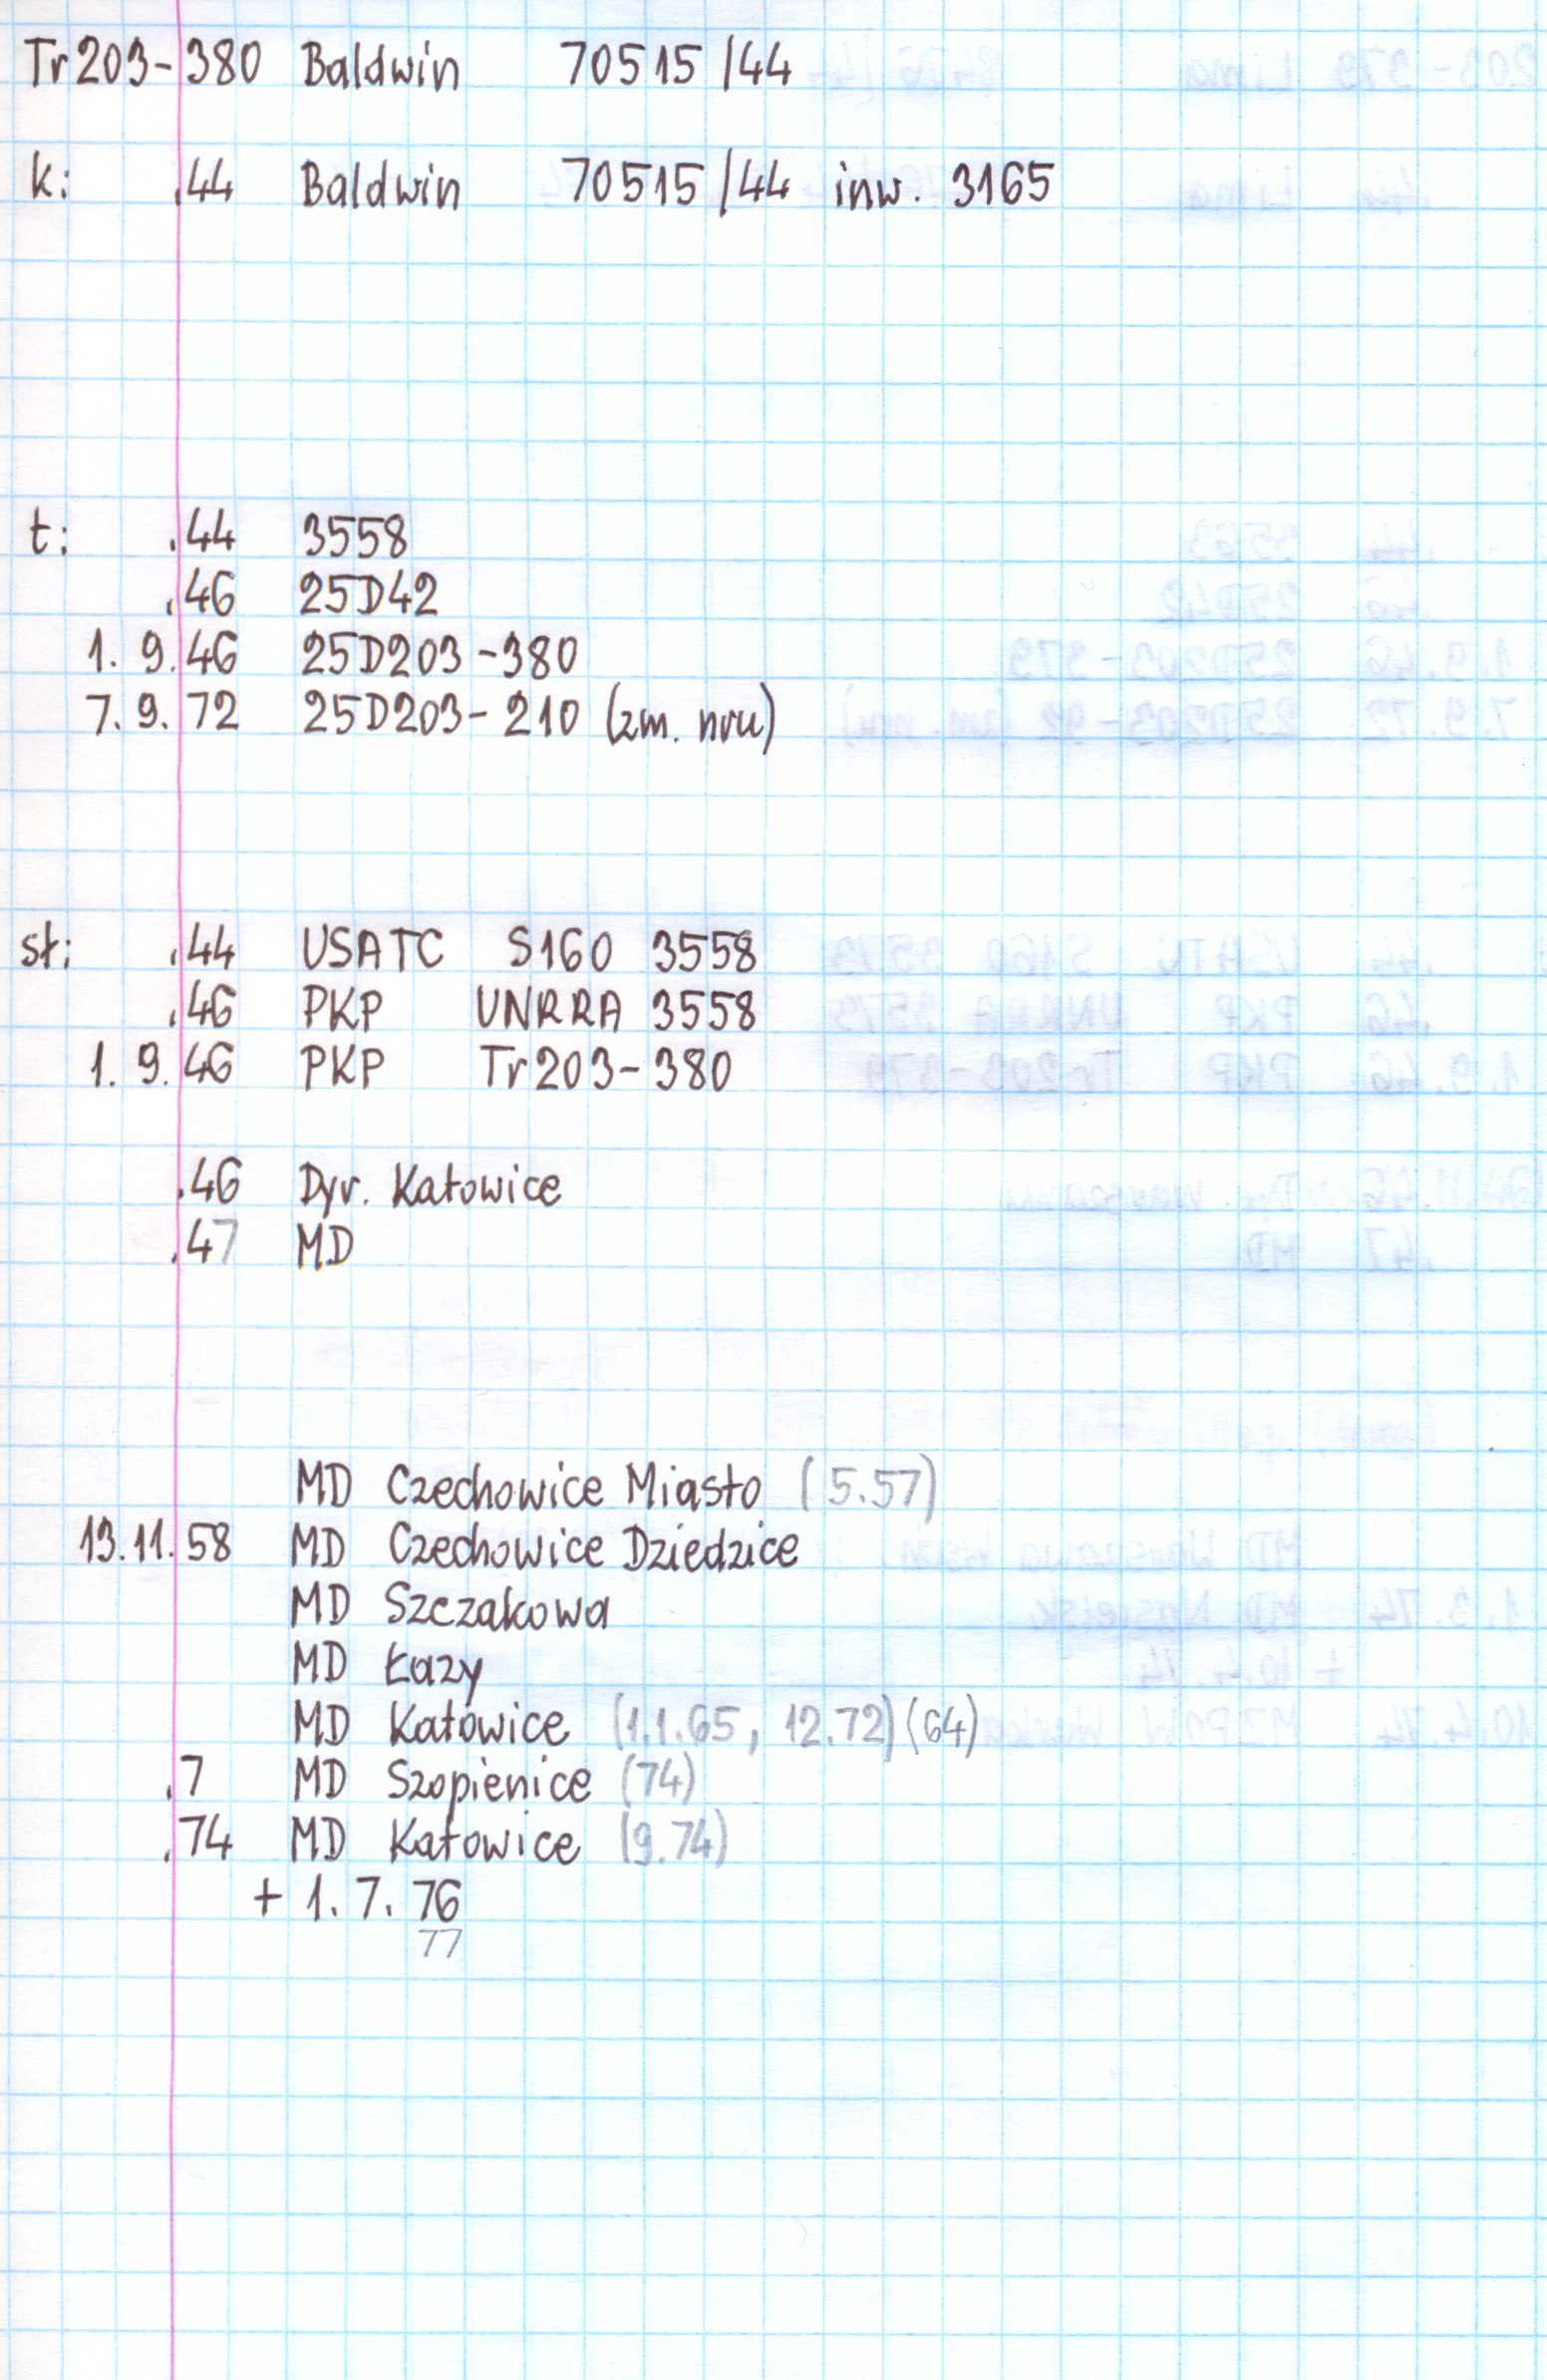 Tr203-380 Baldwin 70515/44
k: .44 Baldwin 70515/44 inw. 3165
t: .44 3558
.46 25D42
1. 9. 46 25D203-380
7. 9. 72 25D203-210 (zm. nru)
sł: .44 USATC S160 3558
.46 PKP UNRRA 3558
1. 9. 46 PKP Tr203-380
.46 Dyr. Katowice
.47 MD
MD Czechowice Miasto (5.57)
13.11.58 MD Czechowice Dziedzice
MD Szczakowa
MD Łazy
MD Katowice (1.1.65, 12.72) (64)
.7 MD Szopienice (74)
.74 MD Katowice (9.74)
+ 1. 7. 76
77